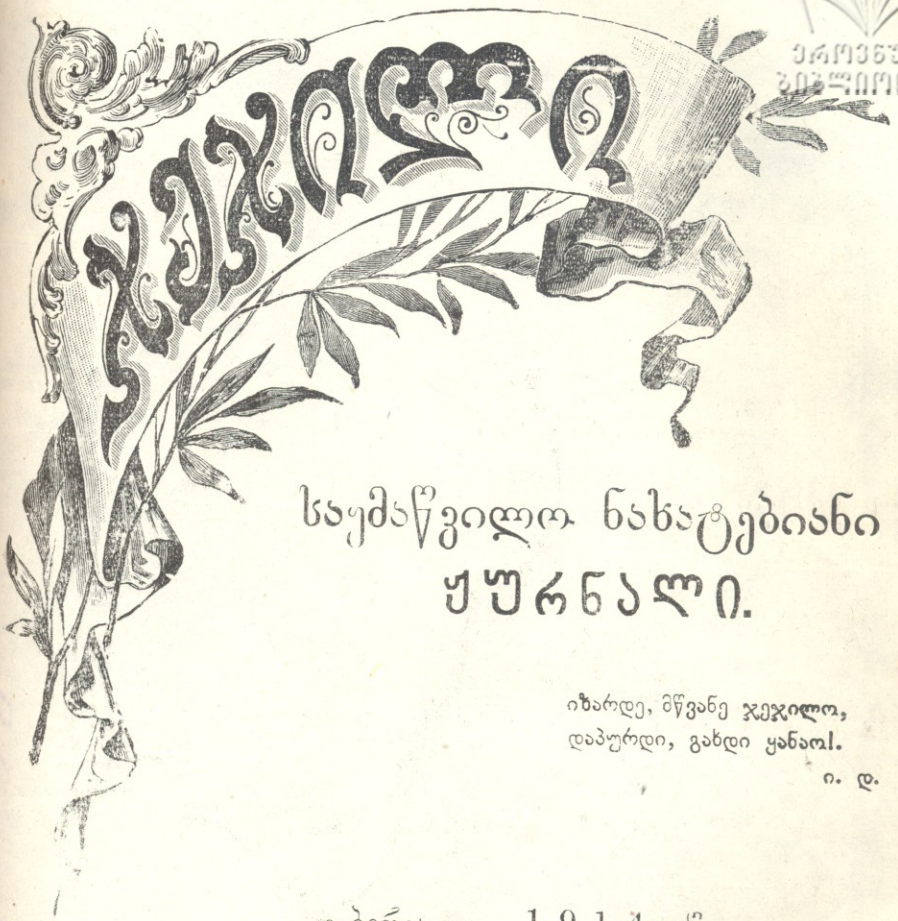 ჯეჯილი
საყმაწვილო ნახატებიანი
ჟურნალი.
იზარდე, მწვანე ჯეჯილო,
დაპურდი, გახდი ყანაო!.
ი. დ.